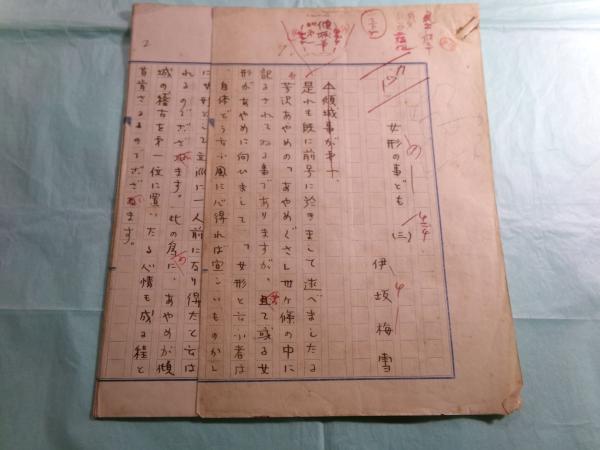 女形の事ども (三)
伊坂梅雪
傾城事が第一、
是れも既に前号に於きまして述べましたる
芳沢あやめの「あやめぐさ」廿九ケ條の中に
記るされてゐる事でありますが、且て或る女
形があやめに向ひまして「女形と云ふ者は
自体どう云ふ風に心得れば宜しいものかし
に女形として立派に一人前に為り得たと云は
れるのでござゐます。此の為に、あやめが傾
城の稽古を第一位に置いたる心情も成る程と
首肯さるゝのでござゐます。
2